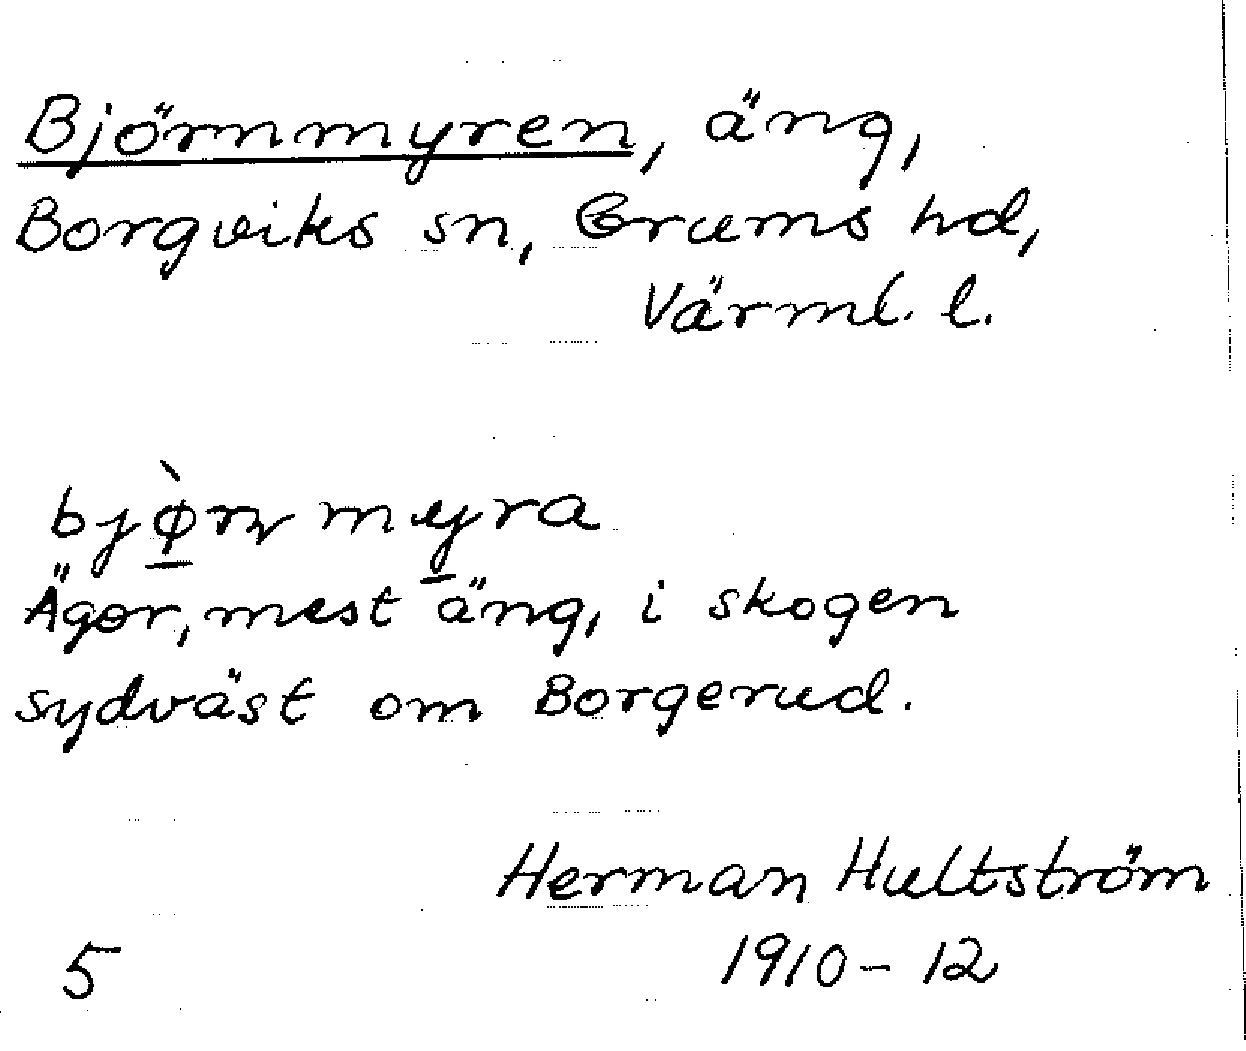 Björnmyren, äng,
Borgviks sn, Grums hd,
Värml. l.
bjø̀ɳmyra
Ägor, mest äng, i skogen
sydväst om Borgerud.
Herman Hultström
5 1910-12